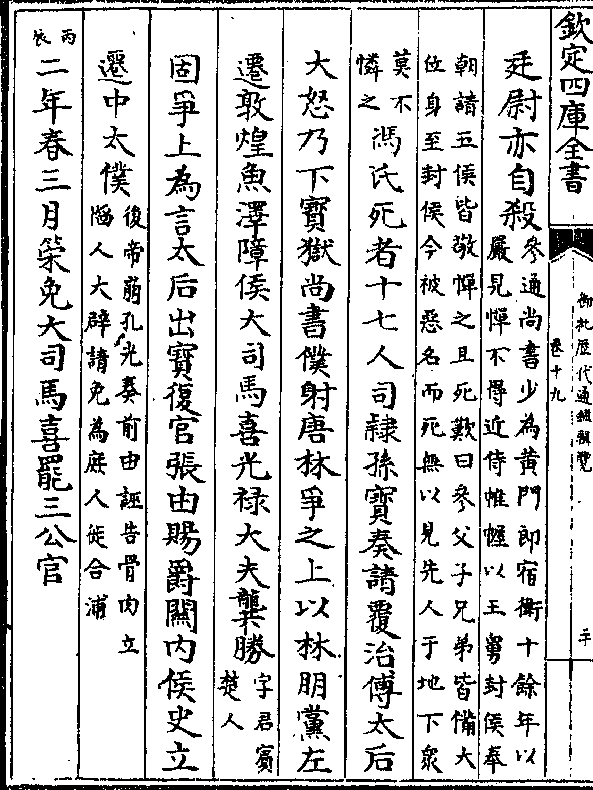 欽定四庫全書
御批歷代通鑑輯覽
卷十九
二十
廷尉亦自殺
參通尚書少為黄門郎宿衛十餘年以
嚴見憚不得近侍帷幄以王舅封侯奉
朝請五侯皆敬憚之且死歎曰參父子兄弟皆備大
位身至封侯今被惡名而死無以見先人于地下衆
莫不
憐之
馮氏死者十七人司隸孫寶奏請覆治傅太后
大怒乃下寶獄尚書僕射唐林爭之上以林朋黨左
遷敦煌魚澤障侯大司馬喜光禄大夫龔勝
字君賓
楚人
固爭上為言太后出寶復官張由賜爵關内侯史立
遷中太僕
後帝崩孔光奏前由誣告骨肉立
陷人大辟請免為庶人徙合浦
丙
辰
二年春三月策免大司馬喜罷三公官